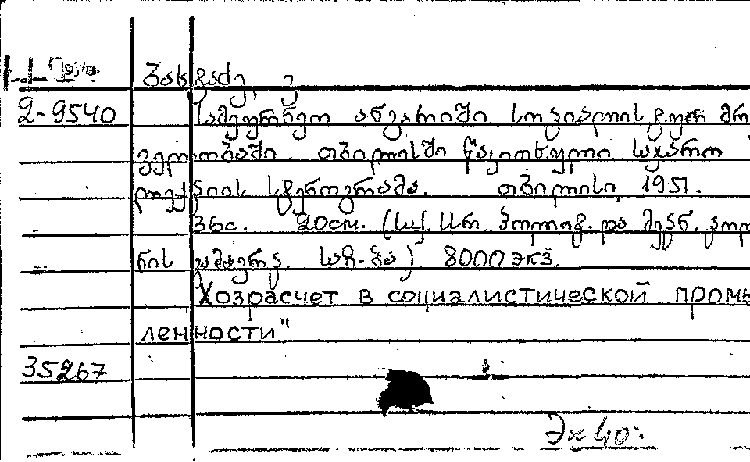 ვახტაძე, ვ
2-9540 სამეურნეო ანგარიში სოციალისტურ მრ
ველობაში. თბილისში წაკითხული საჯარო
ლექციის სტენოგრამა. თბილისი, 1951.
36с. 20см. (საქ. სსრ პოლიტ. და მეცნ. ცოდ
ნის საზ-ბა) 8000 ეკზ.
Хозрасчет в социалистической промы
ленности"
35267